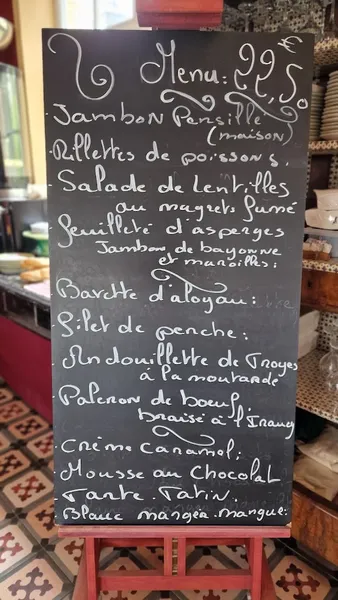 Menu: 22,50 €
Jambon Persillé
(maison)
Rillettes de poissons.
Salade de lentilles
au magret fumé
feuilleté d'asperges
Jambon de bayonne
et maroilles:
Bavette d'aloyau:
Filet de perche:
Andouillette de Troyes
à la moutarde
Paleron de boeuf
braisé à l'Irancy
Crème Caramel:
Mousse au Chocolat
Tarte. Tatin.
Blanc manger. mangue: